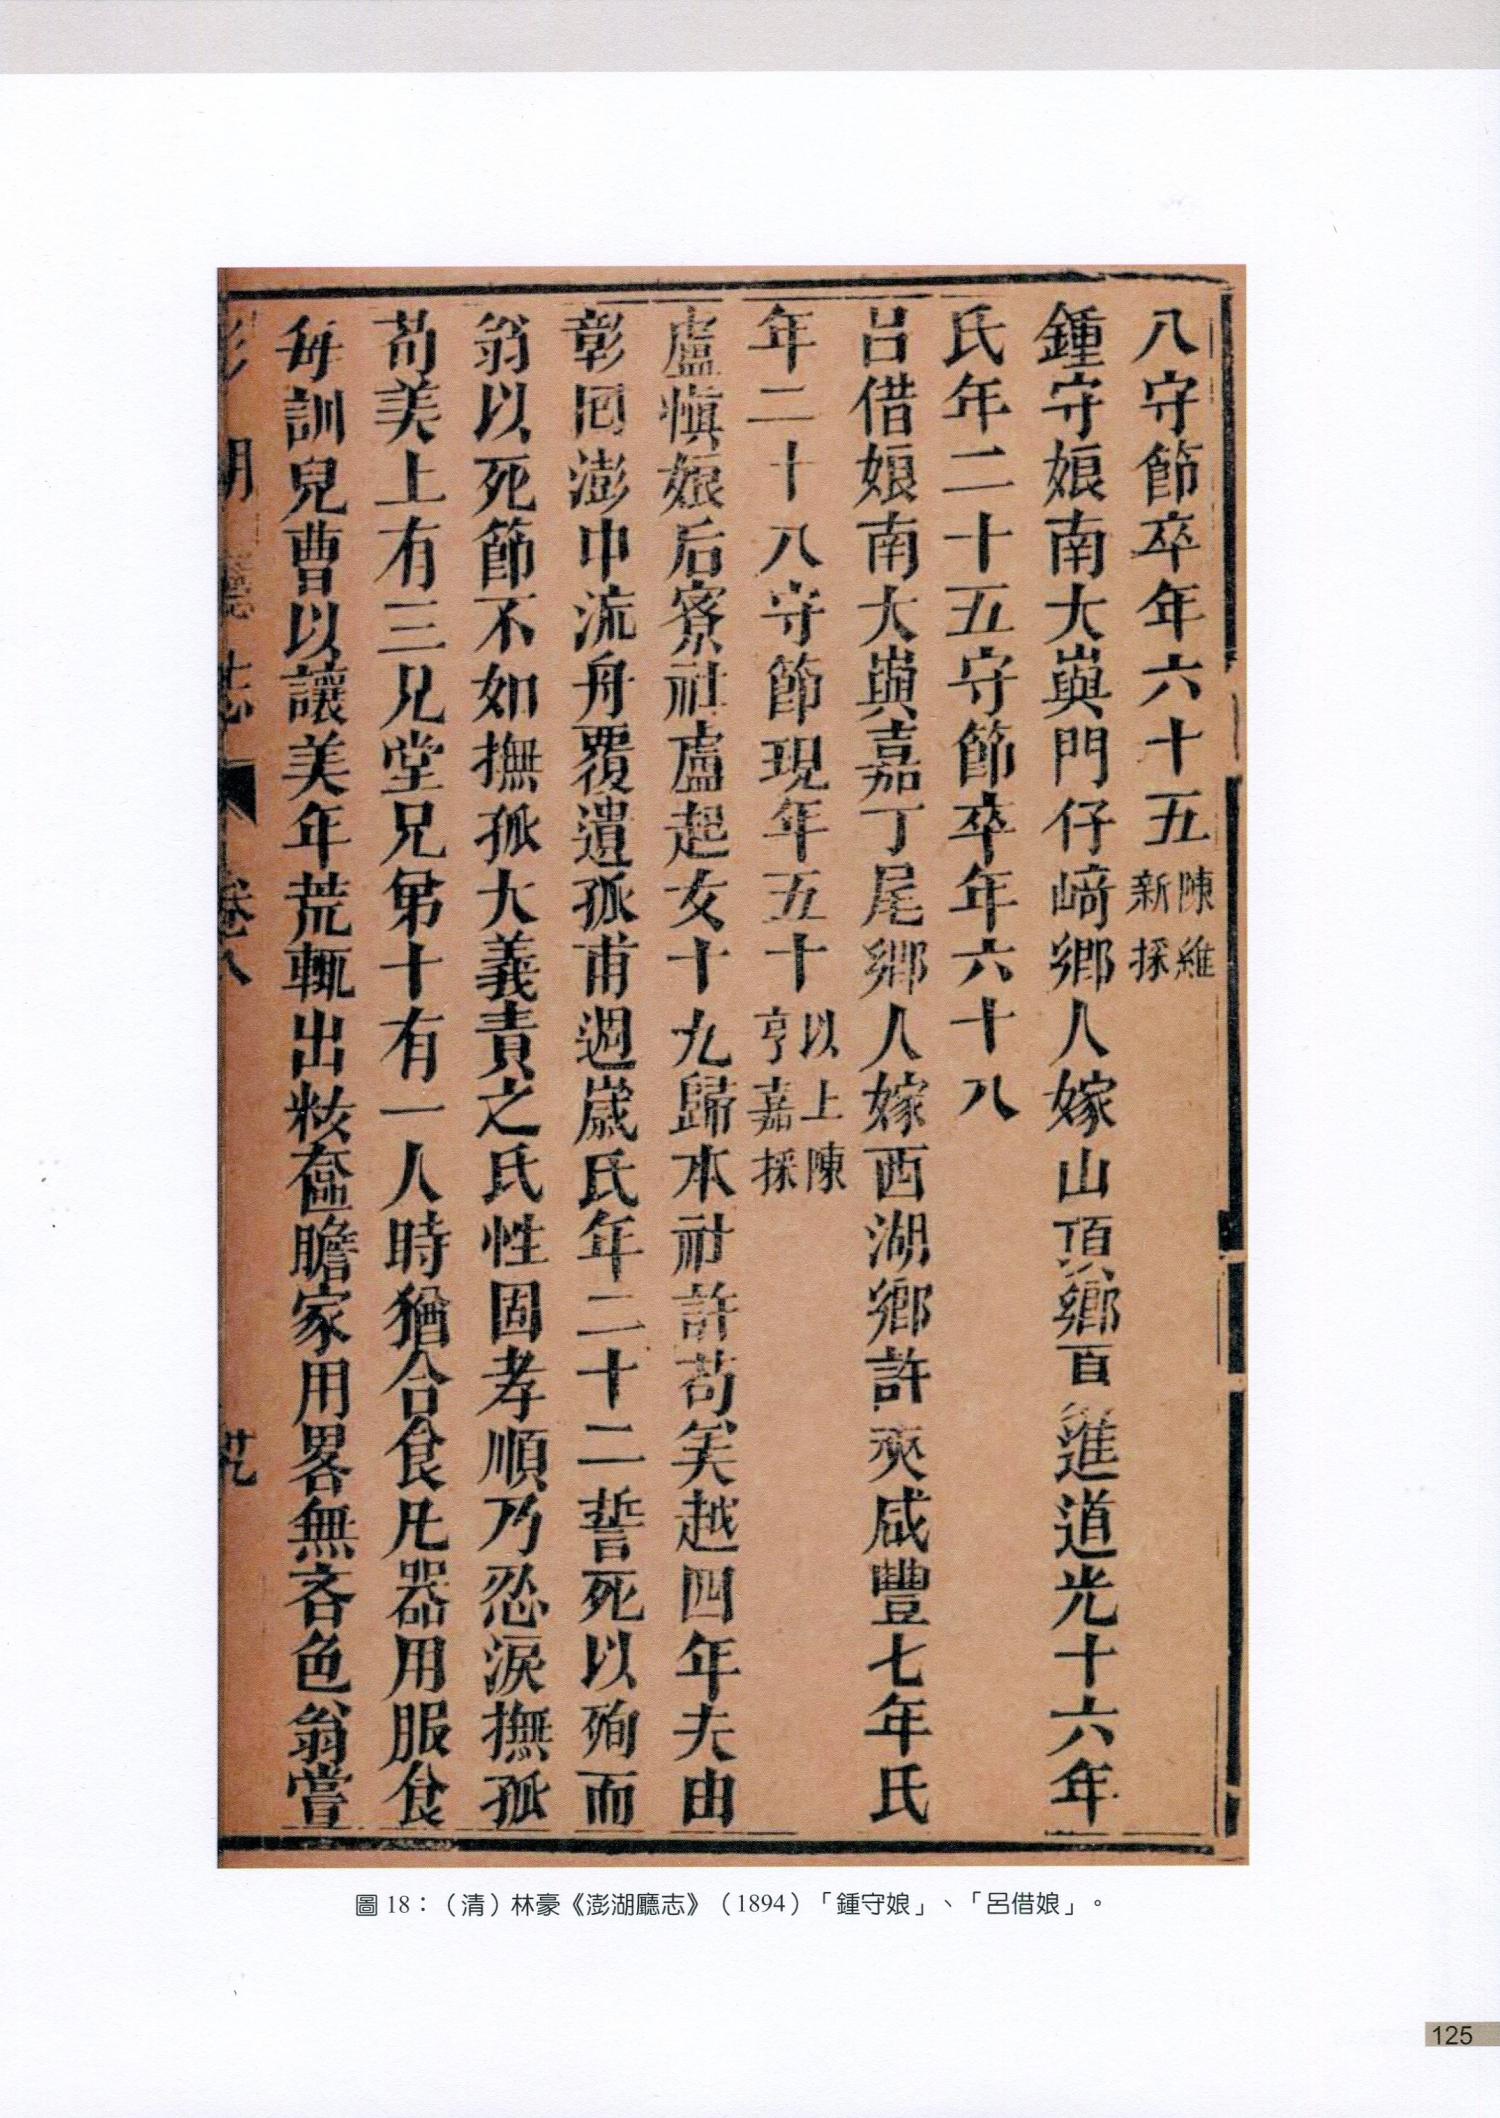 八守節卒年六十五陳維新採
鍾守娘南大嶼門仔﨑鄉人嫁山頂鄉百進道光十六年
氏年二十五守節卒年六十八
呂借娘南大嶼嘉丁尾鄉人嫁西湖鄉許爽咸豐七年氏
年二十八守節現年五十以上陳亨嘉採
盧愼娘后寮社盧起女十九歸本社許苟美越四年夫由
彰囘澎中流舟覆遺孤甫週歲氏年二十二誓死以殉而
翁以死節不如撫孤大義責之氏性固孝順乃忍淚撫孤
苟美上有三兄堂兄弟十有一人時猶合食凡器用服食
每訓兒曹以讓美年荒輒出粧奩贍家用畧無吝色翁嘗
澎湖廳志 卷八
圖 18：（清）林豪《澎湖廳志》（1894）「鍾守娘」、「呂借娘」。
125